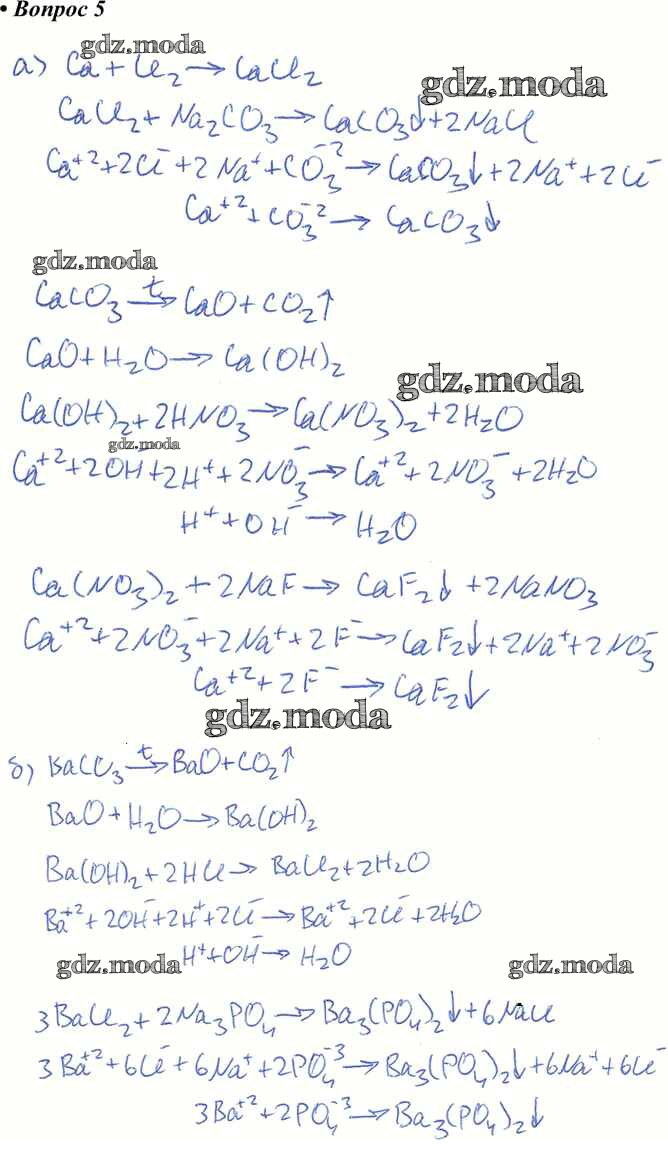 • Вопрос 5
gdz.moda
а) Ca + Cl₂ → CaCl₂
gdz.moda
CaCl₂ + Na₂CO₃ → CaCO₃↓ + 2NaCl
Ca⁺² + 2Cl⁻ + 2Na⁺ + CO₃⁻² → CaCO₃↓ + 2Na⁺ + 2Cl⁻
Ca⁺² + CO₃⁻² → CaCO₃↓
gdz.moda
CaCO₃ →ᵗ CaO + CO₂↑
CaO + H₂O → Ca(OH)₂
gdz.moda
Ca(OH)₂ + 2HNO₃ → Ca(NO₃)₂ + 2H₂O
gdz.moda
Ca⁺² + 2OH⁻ + 2H⁺ + 2NO₃⁻ → Ca⁺² + 2NO₃⁻ + 2H₂O
H⁺ + OH⁻ → H₂O
Ca(NO₃)₂ + 2NaF → CaF₂↓ + 2NaNO₃
Ca⁺² + 2NO₃⁻ + 2Na⁺ + 2F⁻ → CaF₂↓ + 2Na⁺ + 2NO₃⁻
Ca⁺² + 2F⁻ → CaF₂↓
gdz.moda
б) BaCO₃ →ᵗ BaO + CO₂↑
BaO + H₂O → Ba(OH)₂
Ba(OH)₂ + 2HCl → BaCl₂ + 2H₂O
Ba⁺² + 2OH⁻ + 2H⁺ + 2Cl⁻ → Ba⁺² + 2Cl⁻ + 2H₂O
H⁺ + OH⁻ → H₂O
gdz.moda gdz.moda
3BaCl₂ + 2Na₃PO₄ → Ba₃(PO₄)₂↓ + 6NaCl
3Ba⁺² + 6Cl⁻ + 6Na⁺ + 2PO₄⁻³ → Ba₃(PO₄)₂↓ + 6Na⁺ + 6Cl⁻
3Ba⁺² + 2PO₄⁻³ → Ba₃(PO₄)₂↓